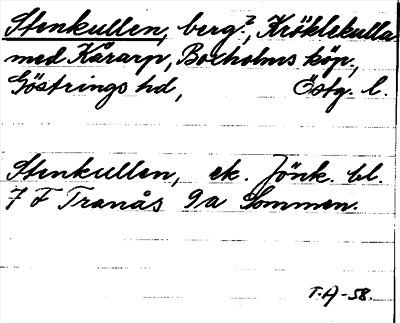 Stenkullen, berg?, Kröklekulla
med Kårarp, Boxholms köp.,
Göstrings hd, Östg. l.
Stenkullen, ek. Jönk. bl.
7 F Tranås 9a Sommen.
T.A-58.